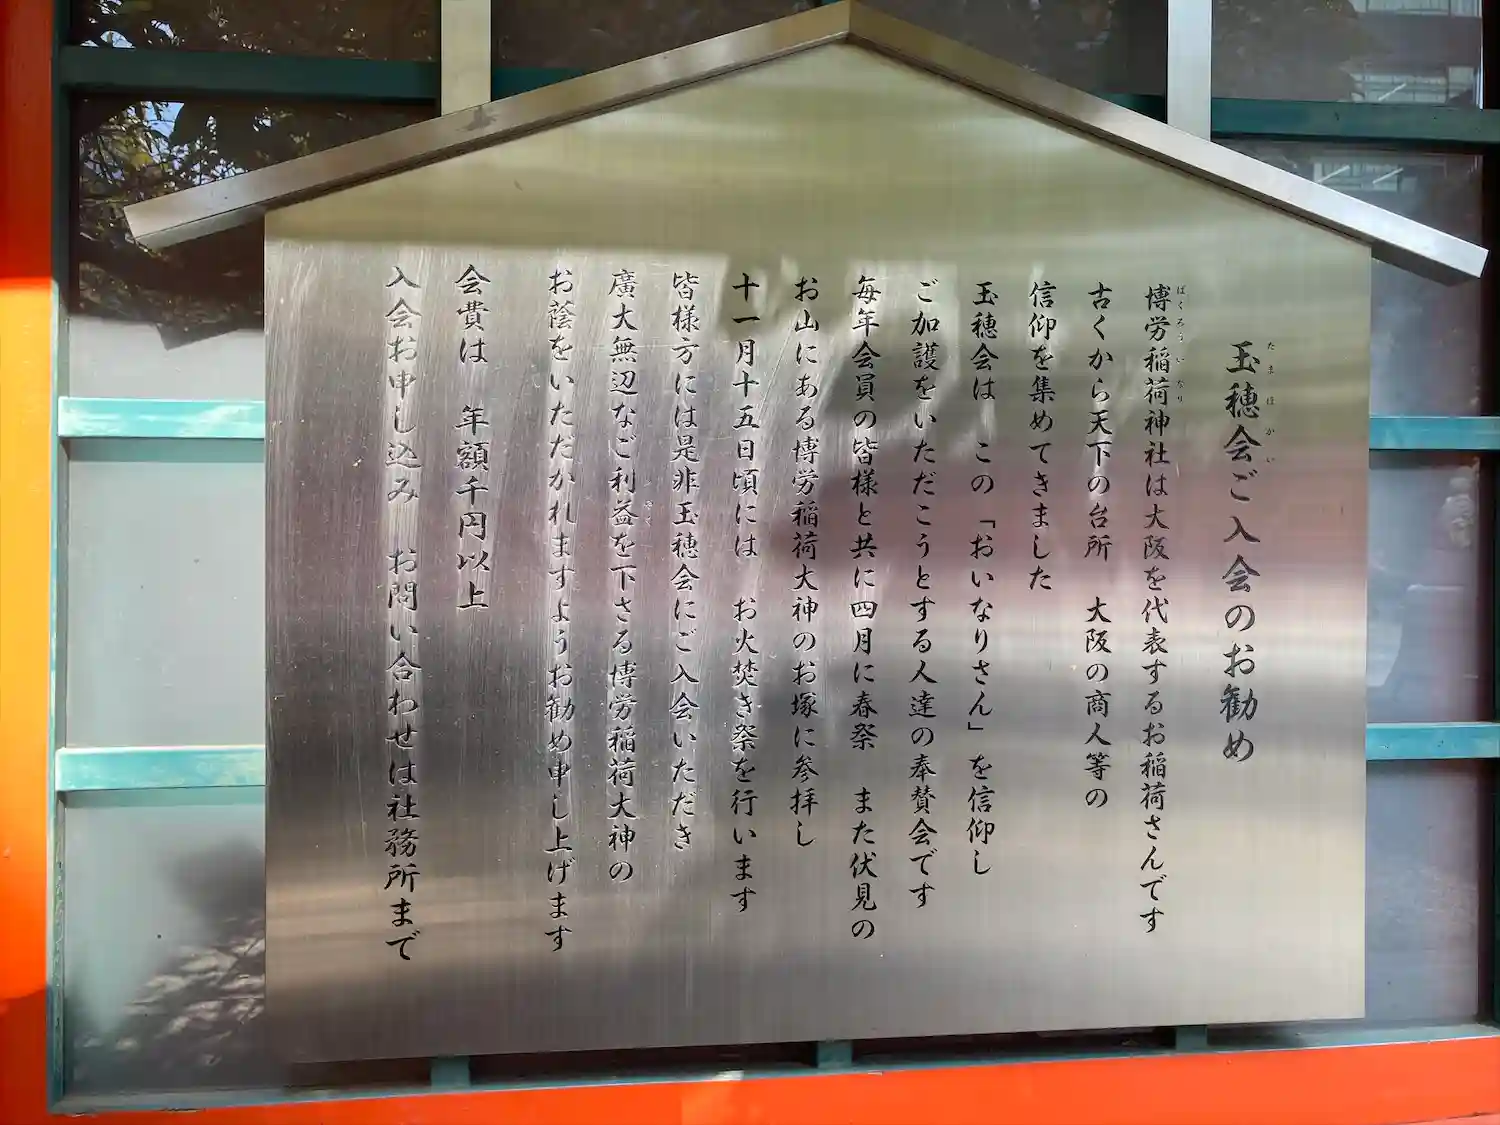 玉穂会ご入会のお勧め
博労稲荷神社は大阪を代表するお稲荷さんです
古くから天下の台所　大阪の商人等の
信仰を集めてきました
玉穂会は　この「おいなりさん」を信仰し
ご加護をいただこうとする人達の奉賛会です
毎年会員の皆様と共に四月に春祭　また伏見の
お山にある博労稲荷大神のお塚に参拝し
十一月十五日頃には　お火焚き祭を行います
皆様方には是非玉穂会にご入会いただき
廣大無辺なご利益を下さる博労稲荷大神の
お蔭をいただかれますようお勧め申し上げます
会費は　年額千円以上
入会お申し込み　お問い合わせは社務所まで